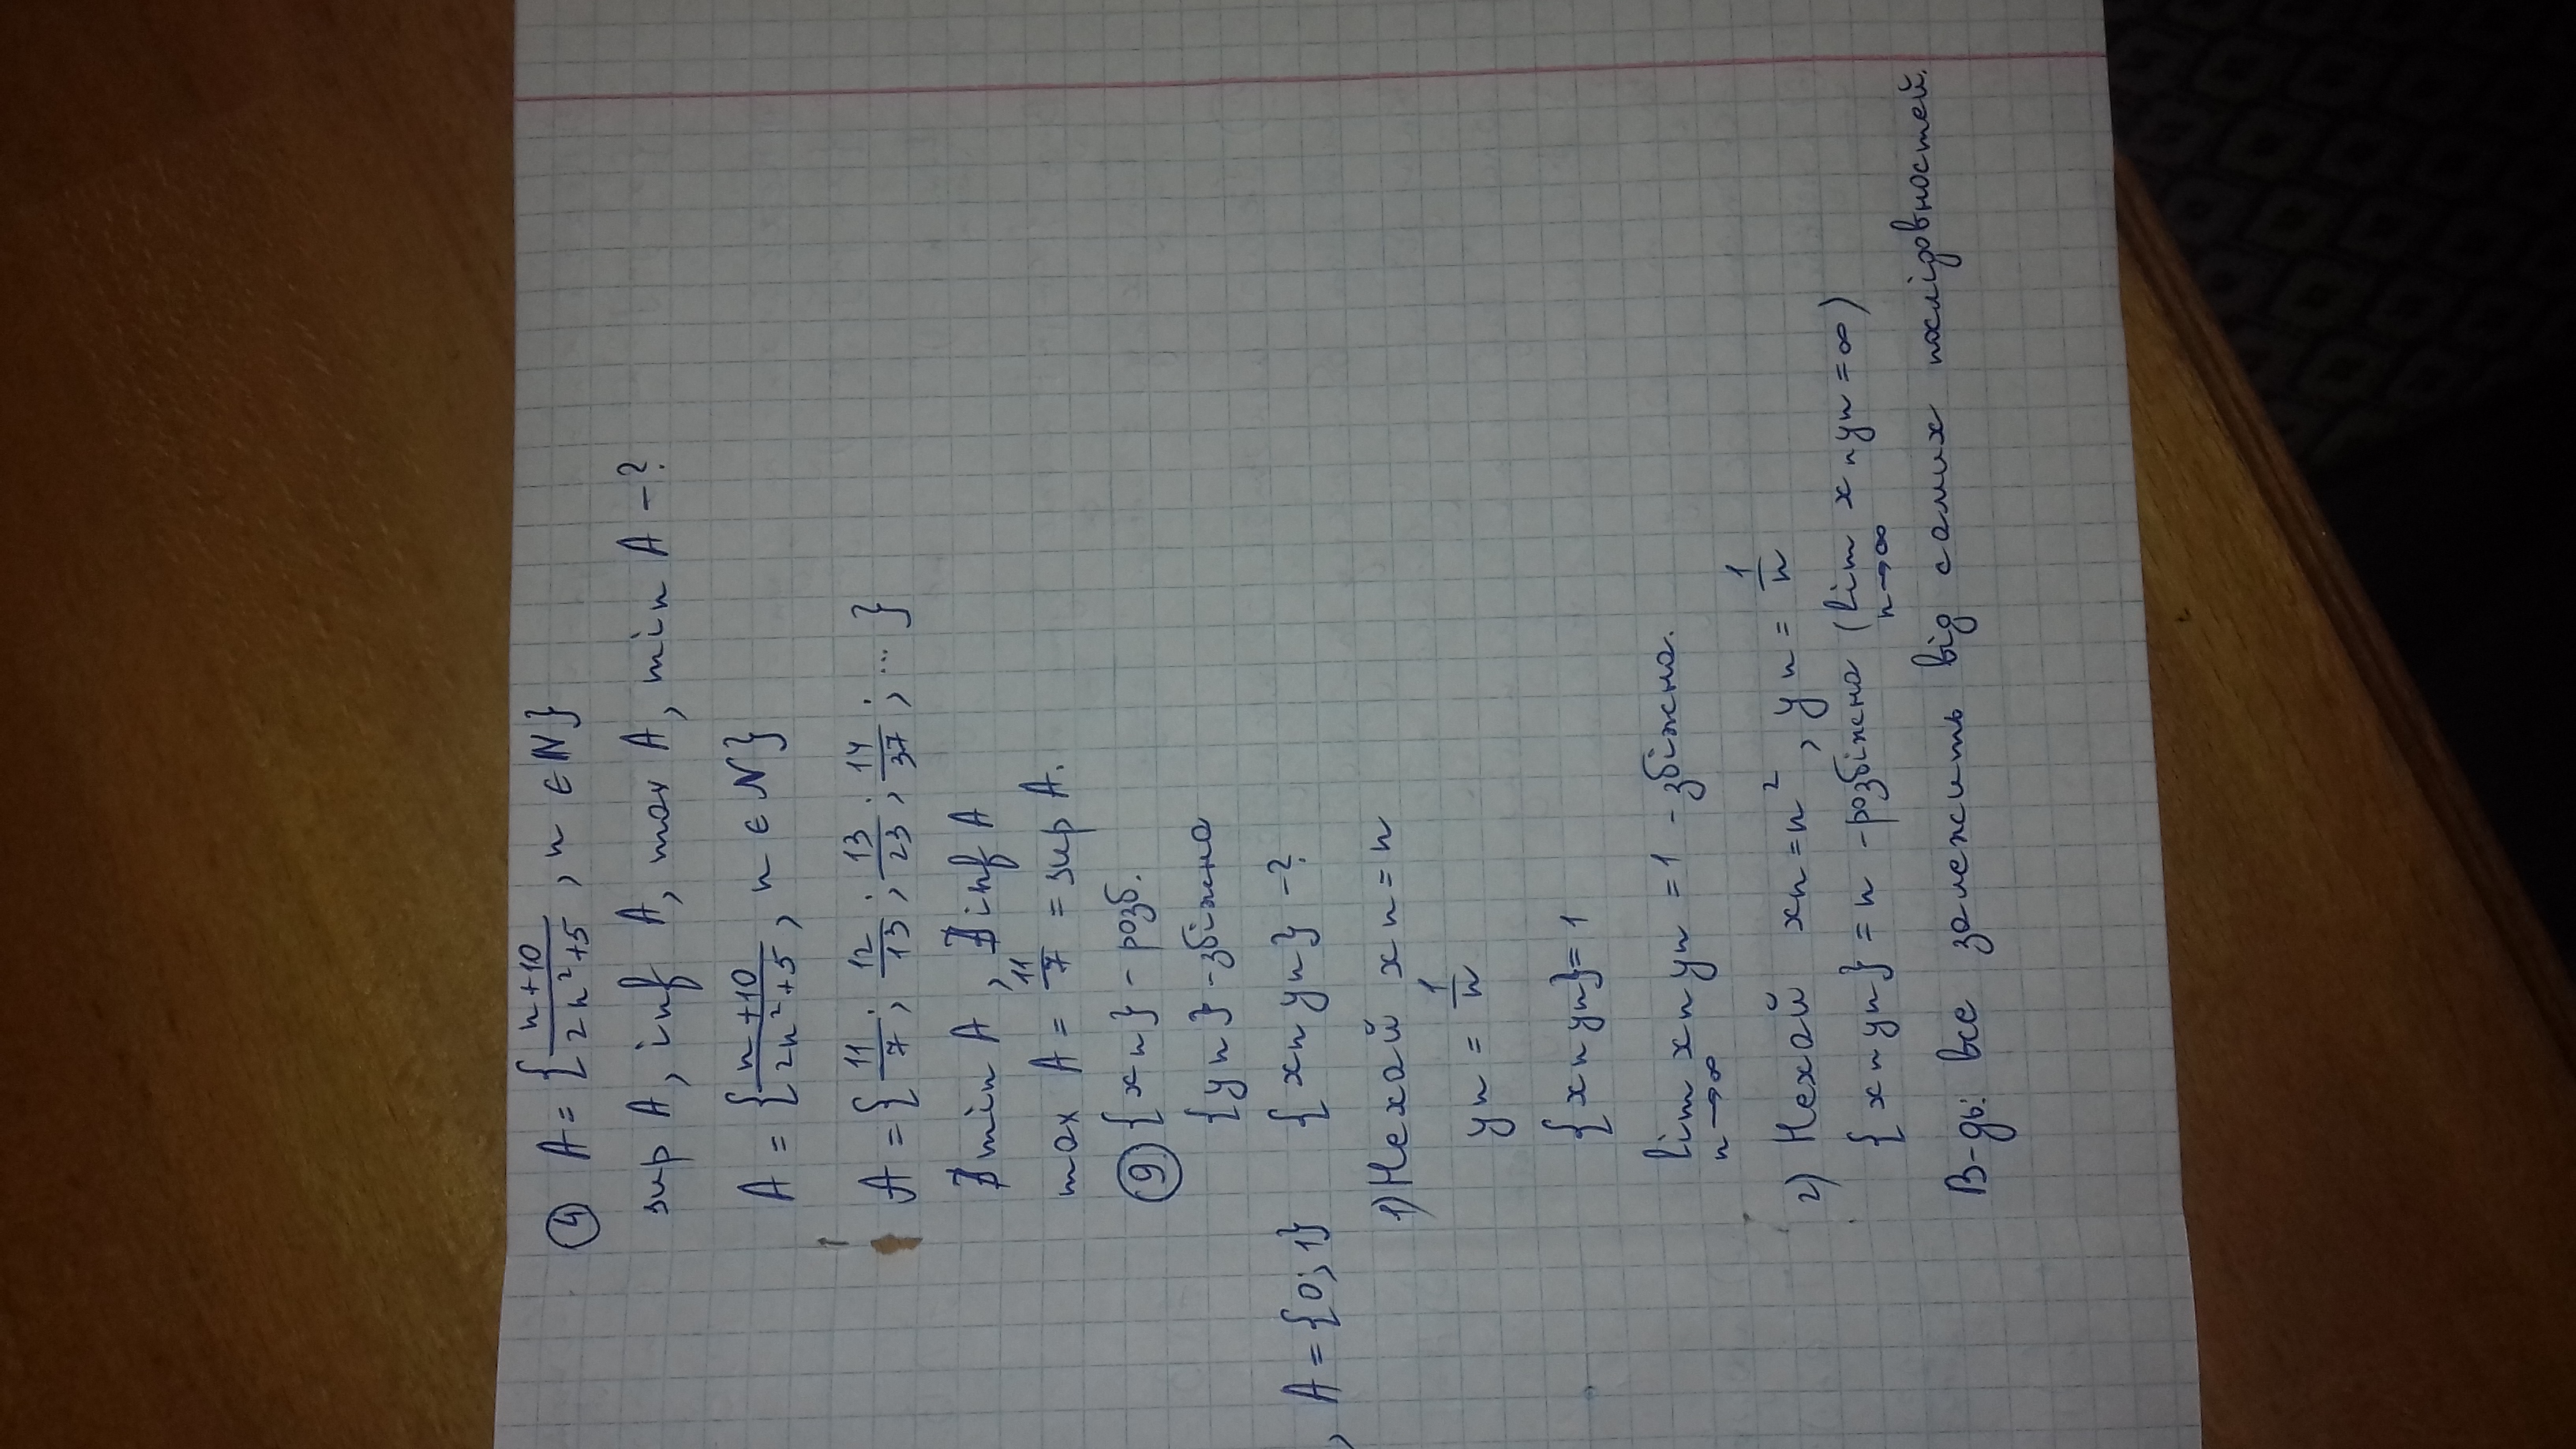 ④ A = { \frac{n+10}{2n²+5}, n ∈ N }
sup A, inf A, max A, min A - ?
A = { \frac{n+10}{2n²+5}, n ∈ N }
A = { \frac{11}{7}; \frac{12}{13}; \frac{13}{23}; \frac{14}{37}; ... }
∄ min A, ∄ inf A
max A = \frac{11}{7} = sup A.
⑨ {xn} - розб.
{yn} - збіжна
{xn yn} - ?
, A = {0; 1}
1) Нехай xn = n
yn = \frac{1}{n}
{xn yn} = 1
lim_{n→∞} xn yn = 1 - збіжна.
2) Нехай xn = n², yn = \frac{1}{n}
{xn yn} = n - розбіжна (lim_{n→∞} xn yn = ∞)
В-дь: все залежить від самих послідовностей.